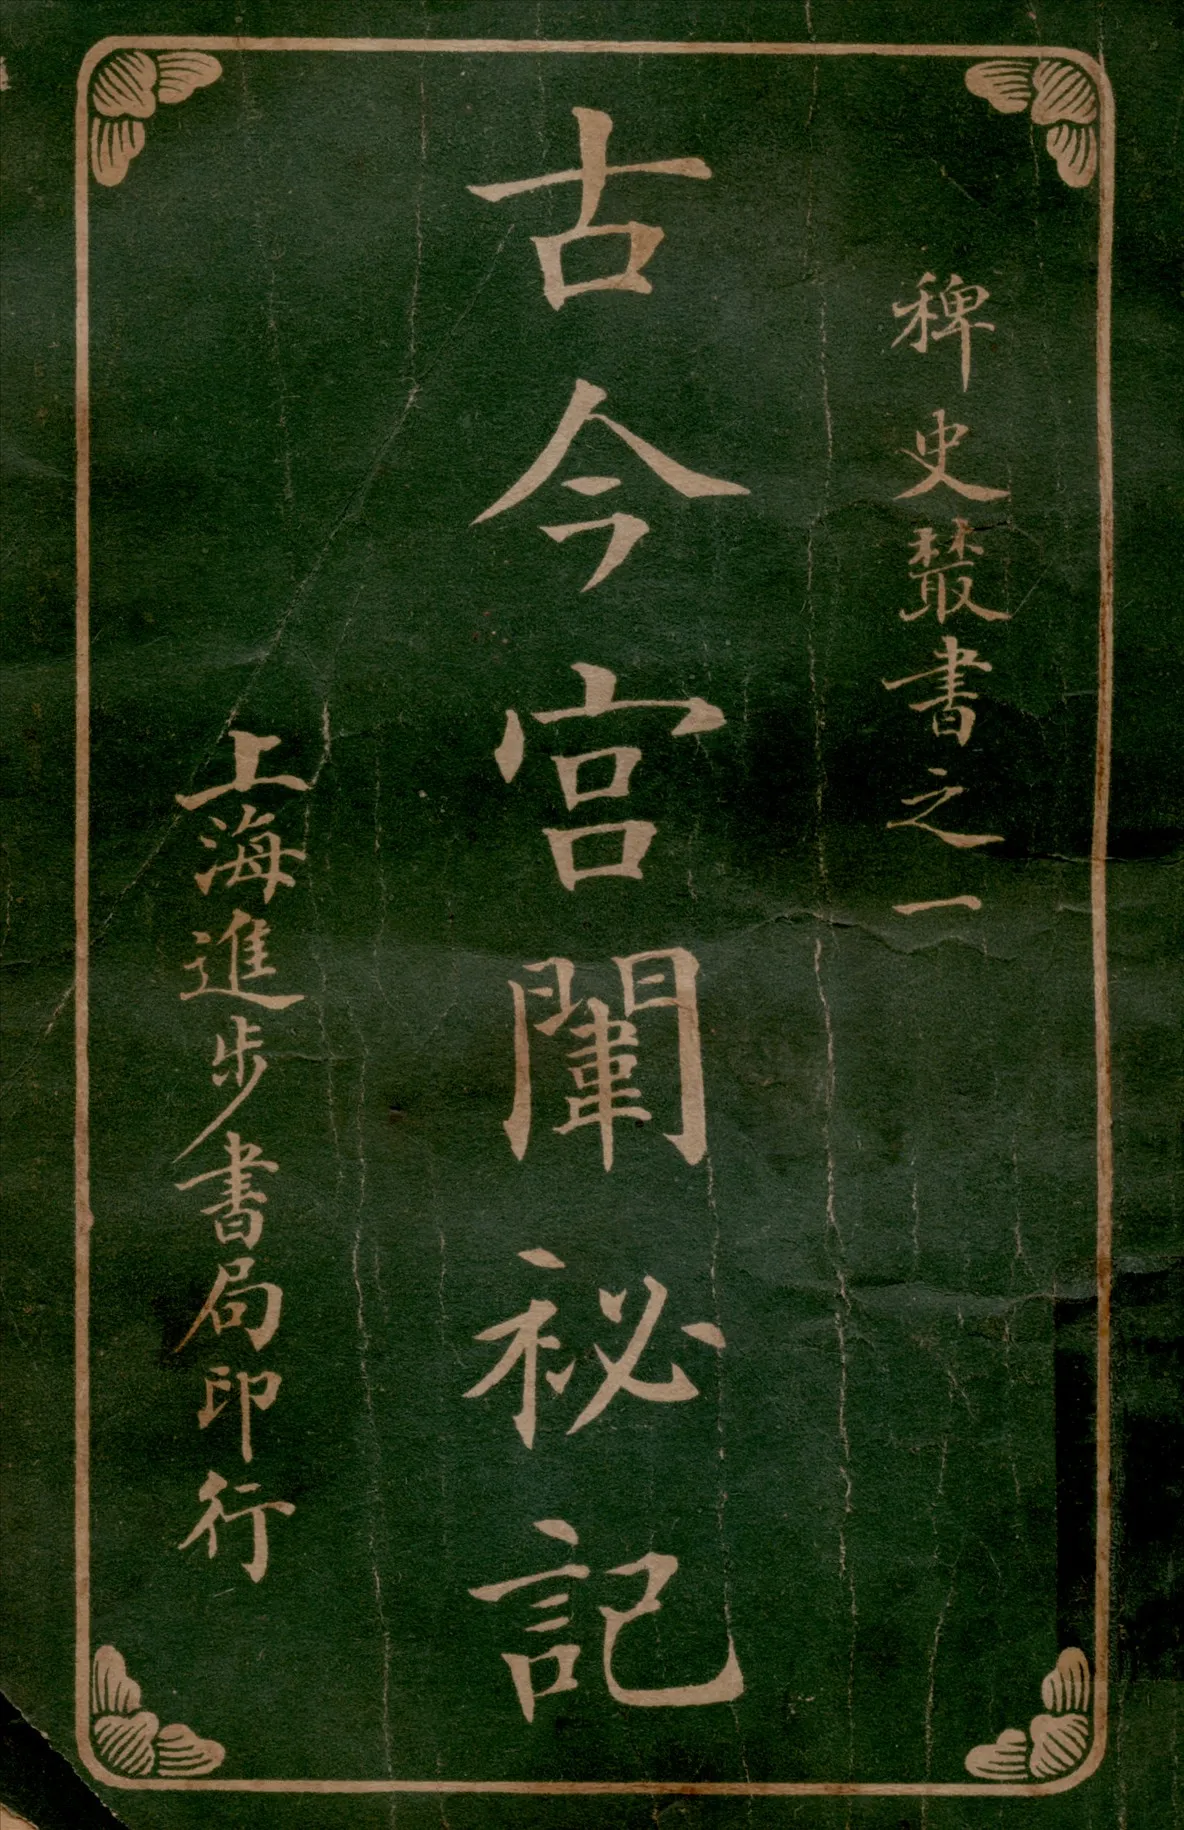 稗史叢書之一
古今宮闈秘記
上海進步書局印行